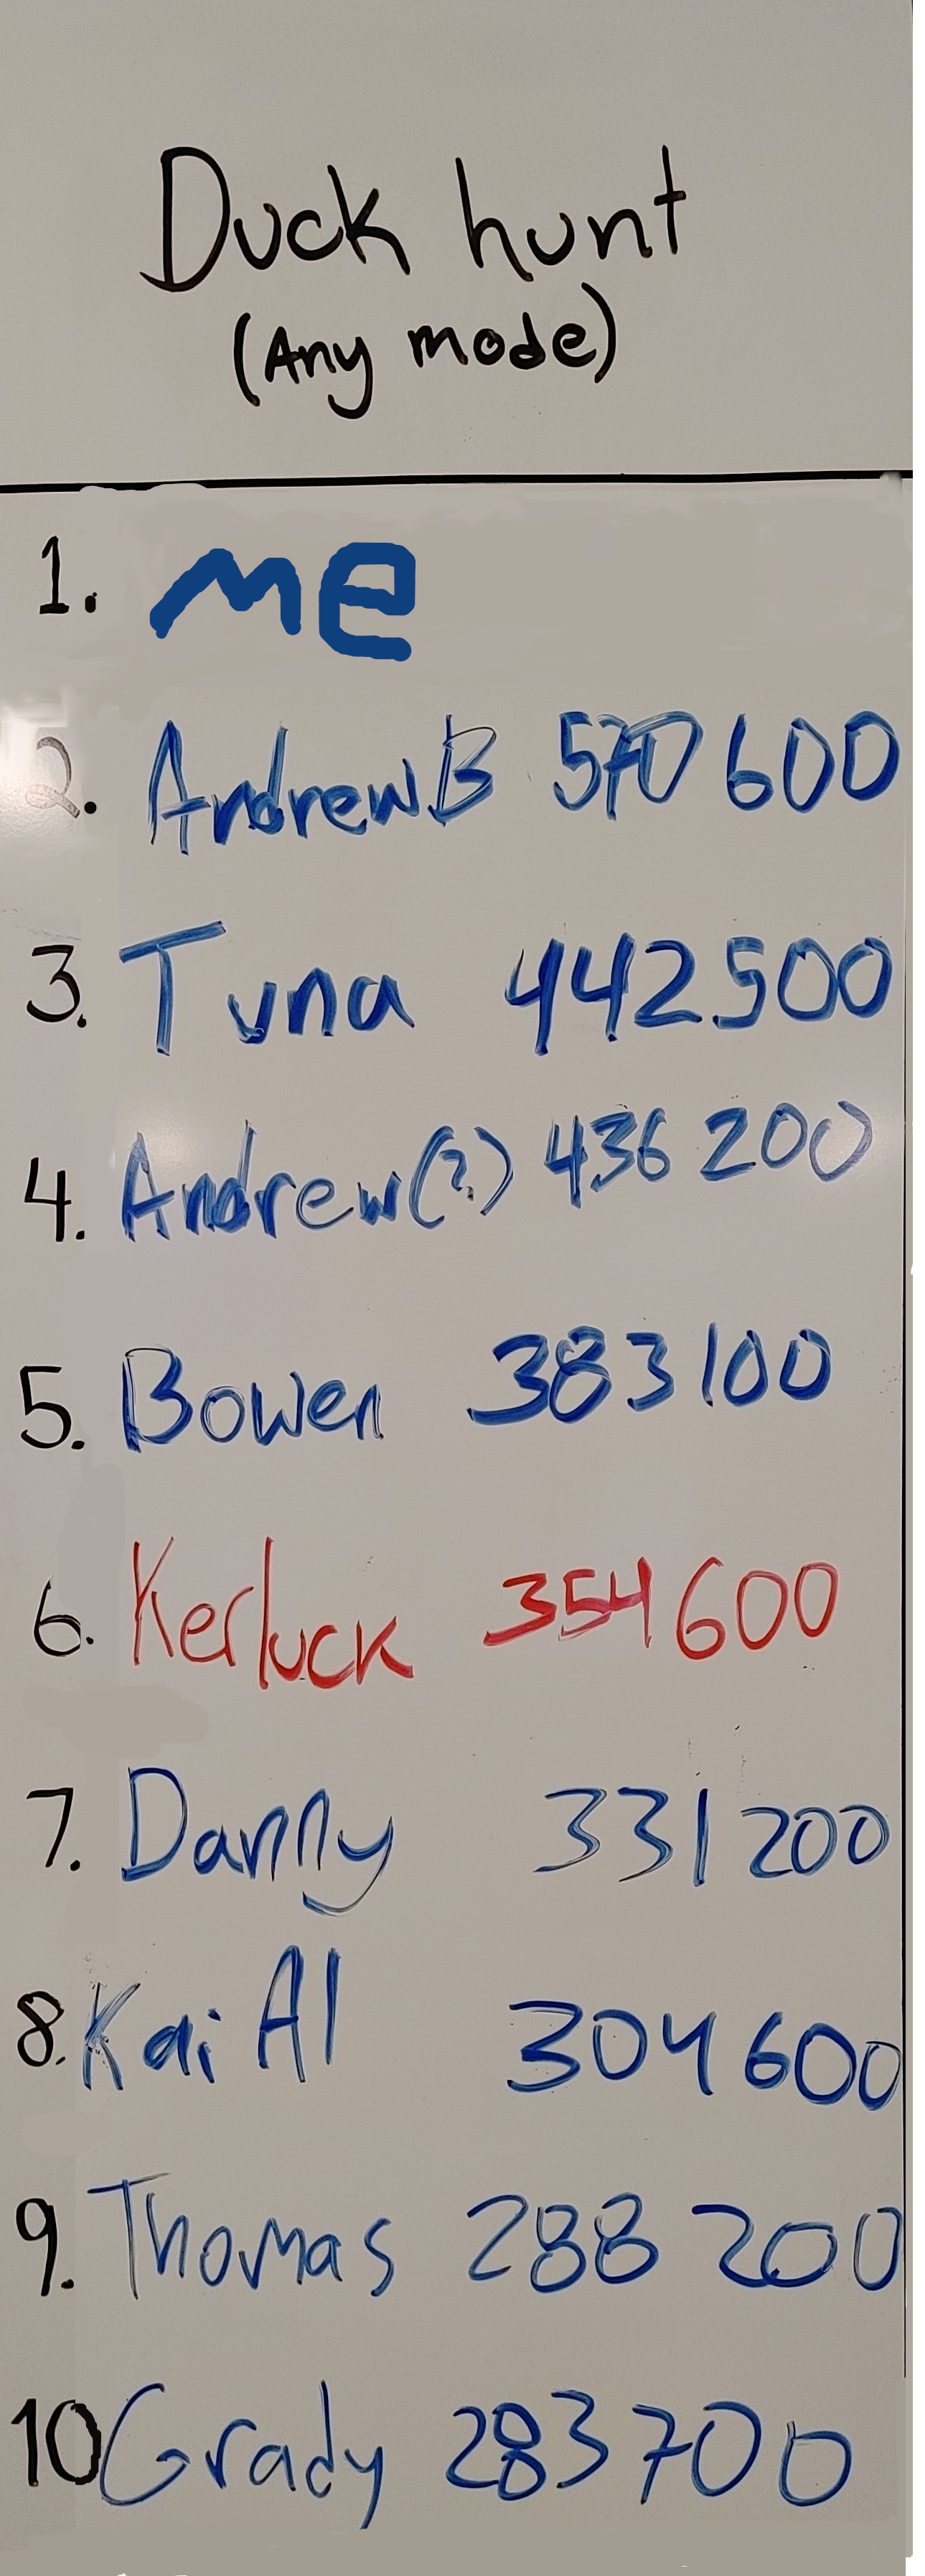 Duck hunt
(Any mode)
1. me
2. Andrew B 570 600
3. Tuna 442500
4. Andrew(?) 436 200
5. Bowen 383100
6. Kerluck 354600
7. Danny 331200
8. Kai Al 304600
9. Thomas 288 200
10 Grady 283700